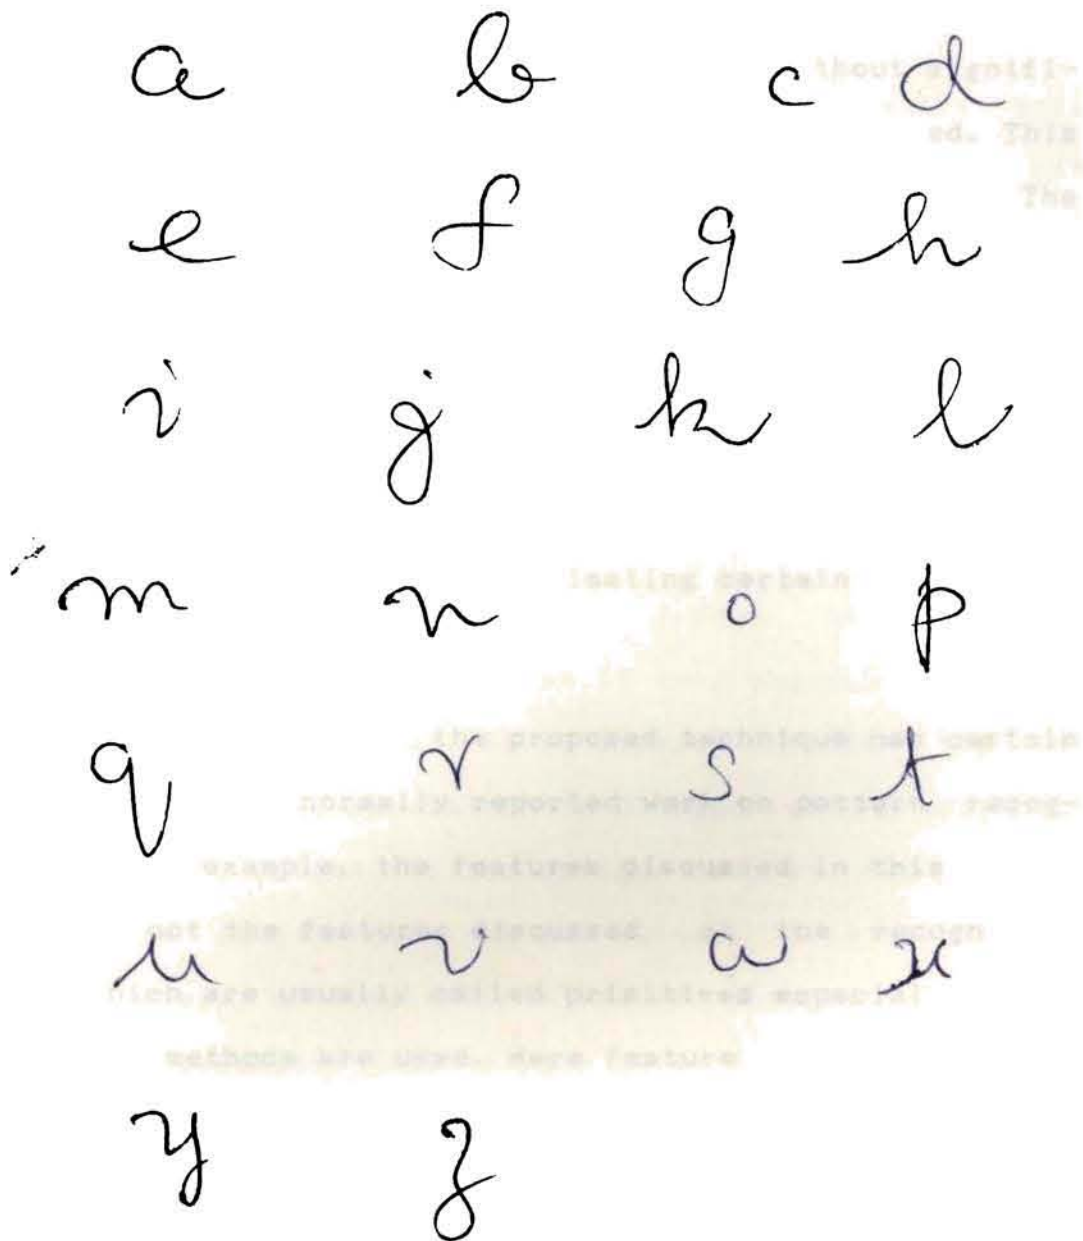 a b c d
thout signifi-
ed. This
The
e f g h
i j k l
m n o p
certain
q r s t
the proposed technique has certain
normally reported work on pattern recog-
example, the features discussed in this
not the features discussed the recogn
u v w x
hich are usually called primitives especial
methods are used. Here feature
y z